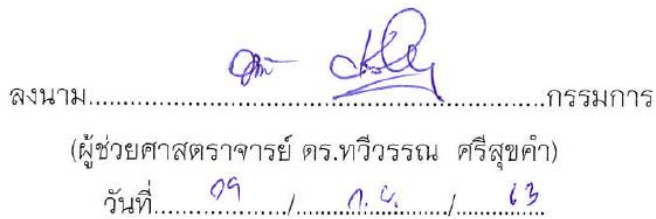 ลงนาม..........................................................กรรมการ
(ผู้ช่วยศาสตราจารย์ ดร.ทวีวรรณ ศรีสุขคำ)
วันที่.......09......../......ก.ย........./......63......